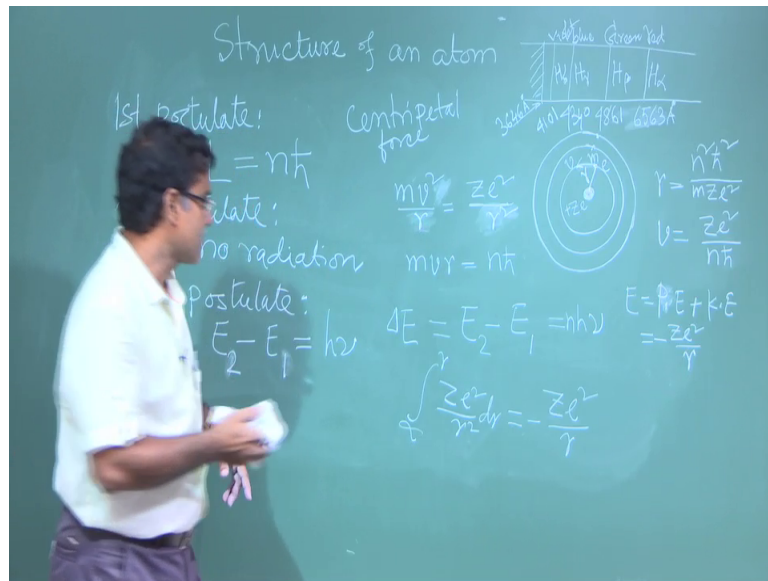 Structure of an atom
violet blue Green red
Hδ Hγ Hβ Hα
3646Å 4101 4340 4861 6563Å
1st postulate:
L = nħ
ulate:
no radiation
postulate:
E₂ - E₁ = hν
centripetal
force
mv²/r = Ze²/r²
mvr = nħ
ΔE = E₂ - E₁ = nhν
∫ Ze²/r² dr = - Ze²/r
+Ze
r = n²ħ²/mZe²
v = Ze²/nħ
E = P.E + K.E
= - Ze²/r